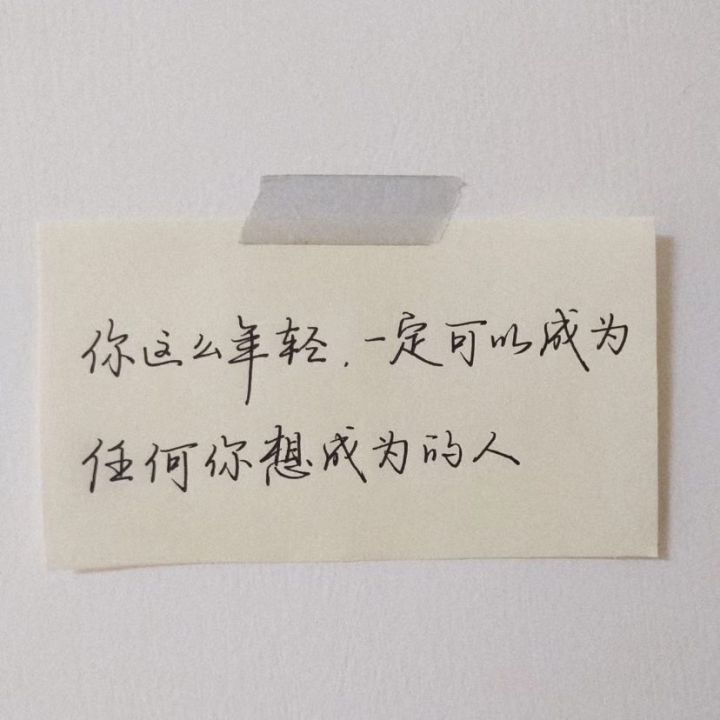 你这么年轻，一定可以成为
任何你想成为的人